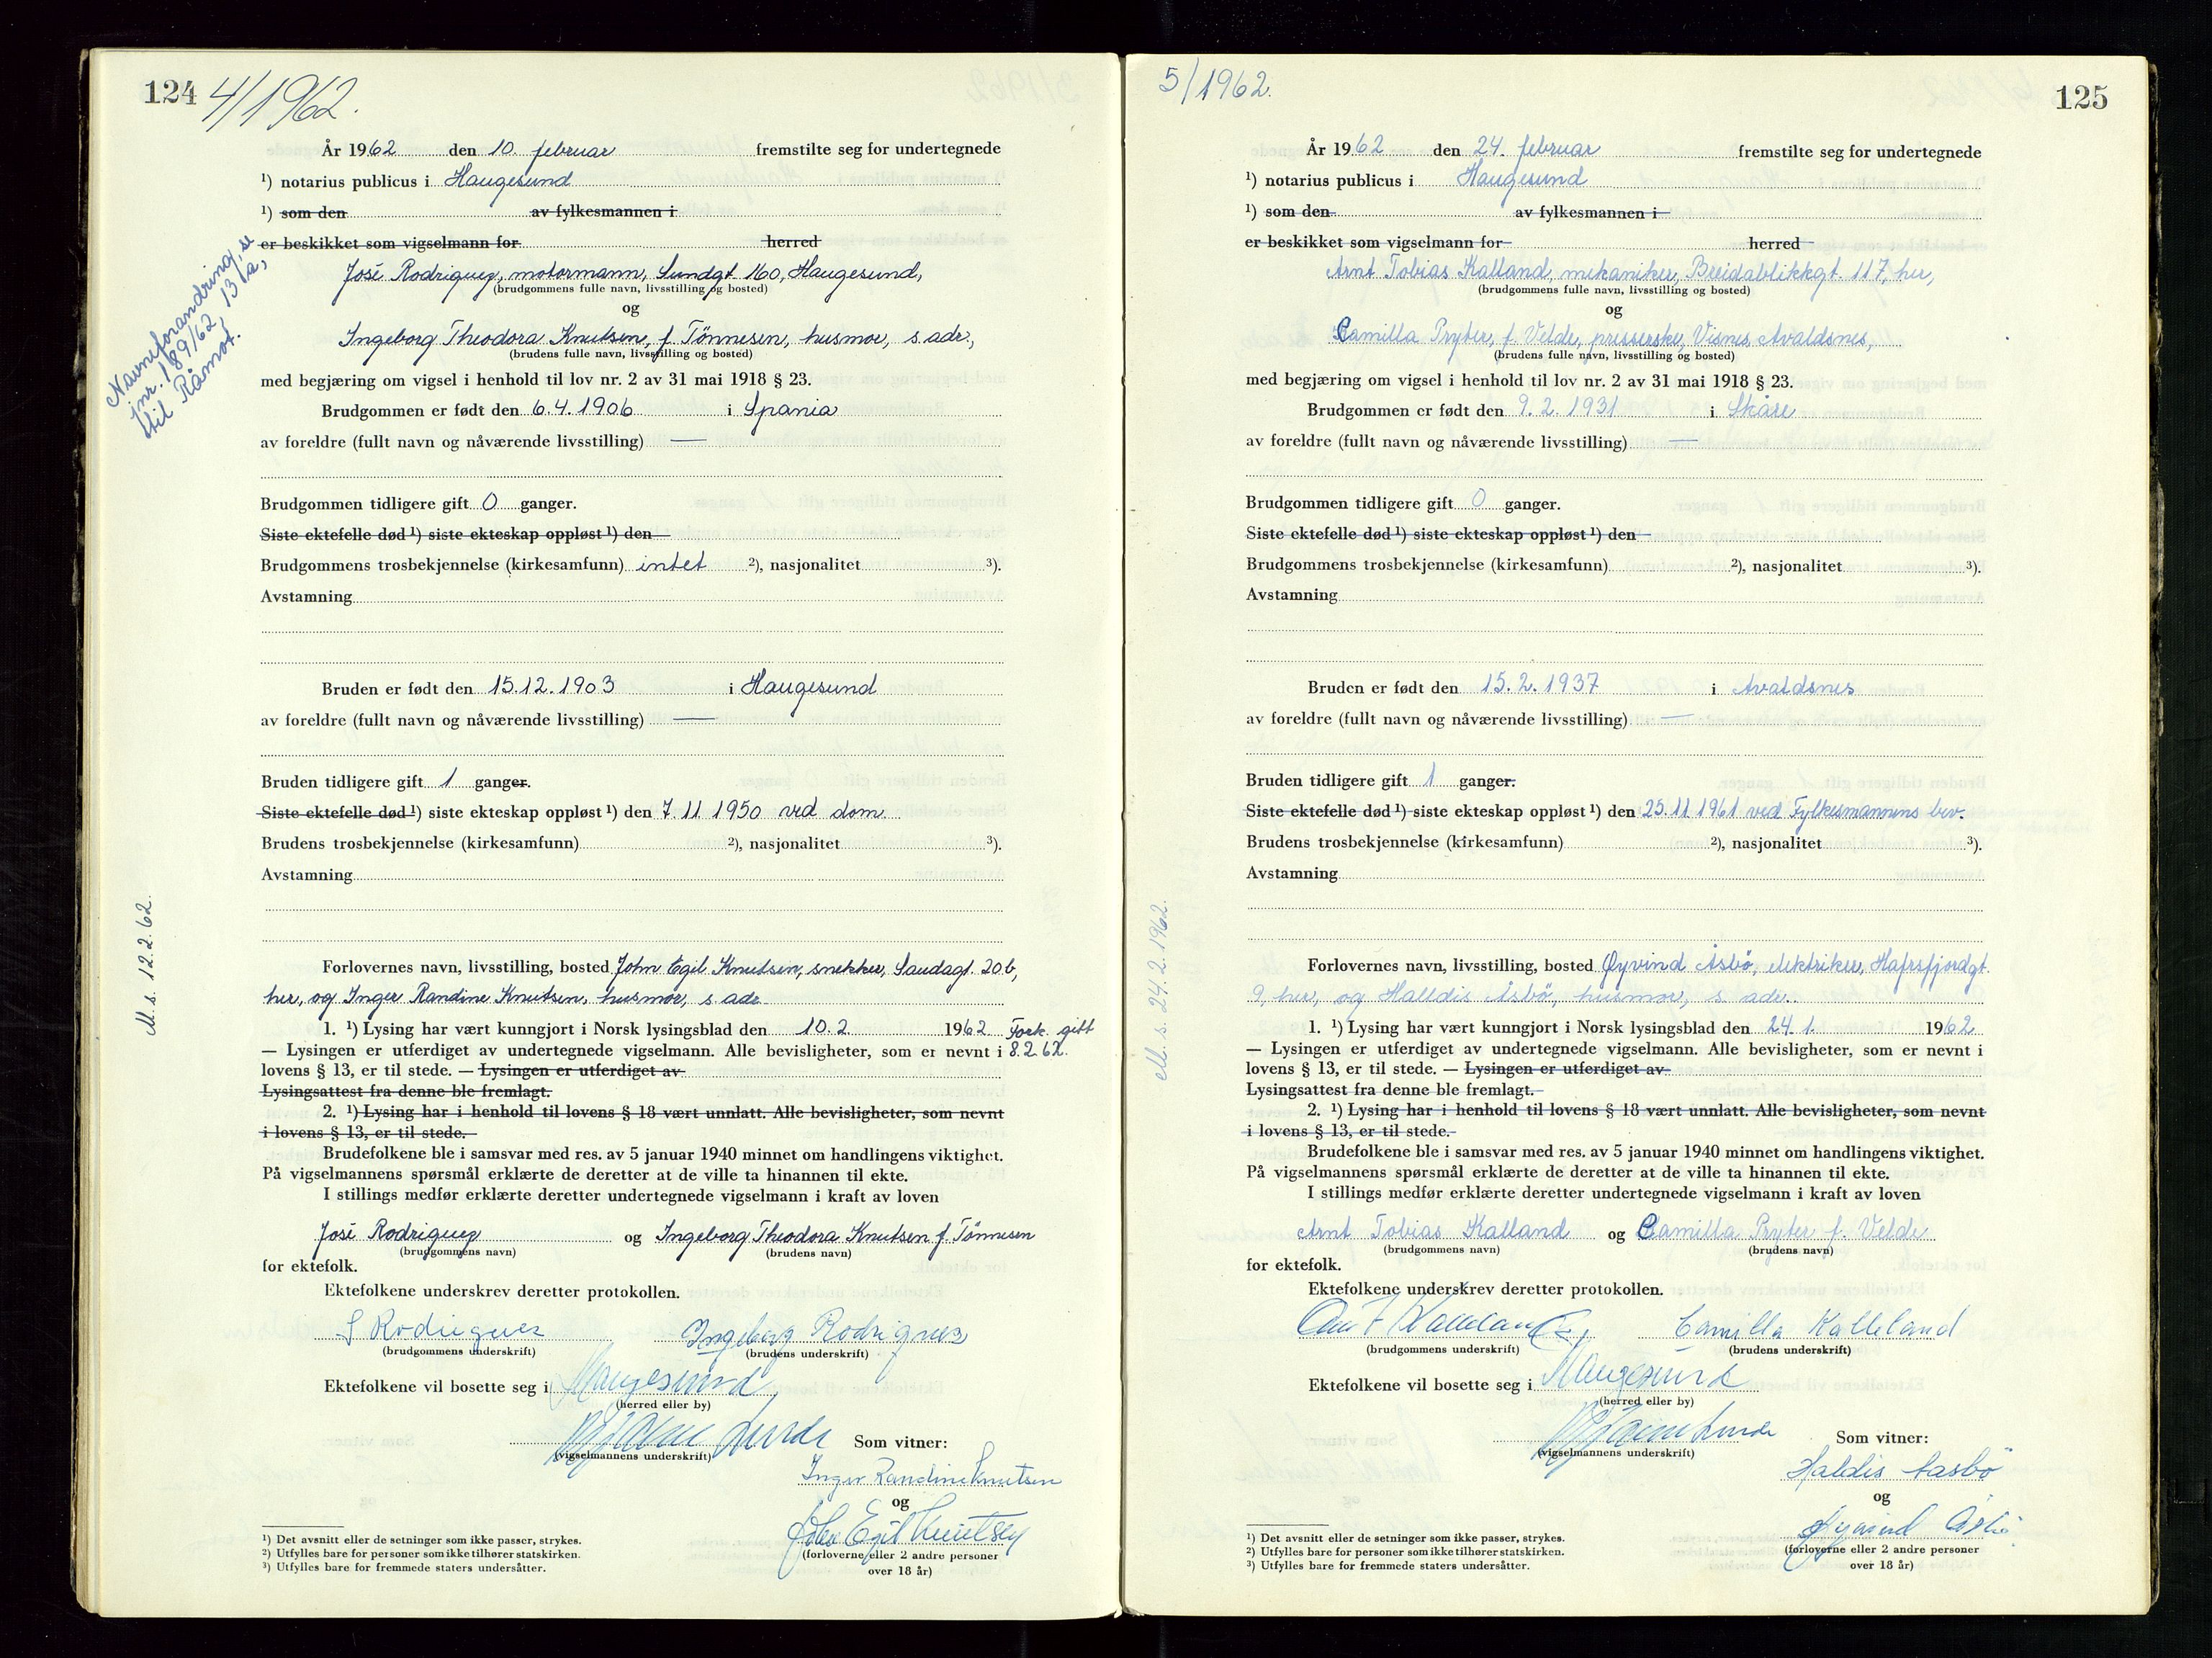 124 4/1962.
År 1962 den 10. februar fremstilte seg for undertegnede
¹) notarius publicus i Haugesund
¹) som den av fylkesmannen i
er beskikket som vigselmann for herred
José Rodriguez, motormann, Sundgt. 160, Haugesund,
(brudgommens fulle navn, livsstilling og bosted)
og
Ingeborg Theodora Knutsen, f. Tönnesen, husmor, s. adr.,
(brudens fulle navn, livsstilling og bosted)
med begjæring om vigsel i henhold til lov nr. 2 av 31 mai 1918 § 23.
Brudgommen er født den 6.4.1906 i Spania
av foreldre (fullt navn og nåværende livsstilling) —
Brudgommen tidligere gift 0 ganger.
Siste ektefelle død ¹) siste ekteskap oppløst ¹) den
Brudgommens trosbekjennelse (kirkesamfunn) intet ²), nasjonalitet ³).
Avstamning
Bruden er født den 15.12.1903 i Haugesund
av foreldre (fullt navn og nåværende livsstilling) —
Bruden tidligere gift 1 ganger.
Siste ektefelle død ¹) siste ekteskap oppløst ¹) den 7.11.1950 ved dom.
Brudens trosbekjennelse (kirkesamfunn) ²), nasjonalitet ³).
Avstamning
Forlovernes navn, livsstilling, bosted John Egil Knutsen, snekker, Saudagt. 20b,
her, og Inger Randine Knutsen, husmor, s. adr.
1. ¹) Lysing har vært kunngjort i Norsk lysingsblad den 10.2. 1962 Fork. gitt
— Lysingen er utferdiget av undertegnede vigselmann. Alle bevisligheter, som er nevnt i 8.2.62.
lovens § 13, er til stede. — Lysingen er utferdiget av
Lysingsattest fra denne ble fremlagt.
2. ¹) Lysing har i henhold til lovens § 18 vært unnlatt. Alle bevisligheter, som nevnt
i lovens § 13, er til stede.
Brudefolkene ble i samsvar med res. av 5 januar 1940 minnet om handlingens viktighet.
På vigselmannens spørsmål erklærte de deretter at de ville ta hinannen til ekte.
I stillings medfør erklærte deretter undertegnede vigselmann i kraft av loven
José Rodriguez og Ingeborg Theodora Knutsen f. Tönnesen
(brudgommens navn) (brudens navn)
for ektefolk.
Ektefolkene underskrev deretter protokollen.
J Rodriguez Ingeborg Rodriguez
(brudgommens underskrift) (brudens underskrift)
Ektefolkene vil bosette seg i Haugesund
(herred eller by)
Som vitner:
(vigselmannens underskrift)
Inger Randine Knutsen
og
John Egil Knutsen
(forloverne eller 2 andre personer
over 18 år)
¹) Det avsnitt eller de setninger som ikke passer, strykes.
²) Utfylles bare for personer som ikke tilhører statskirken.
³) Utfylles bare for fremmede staters undersåtter.
Navneforandring, se
jnr. 189/62, 131a,
til Råmot.
M.s. 12.2.62.
5/1962. 125
År 1962 den 24. februar fremstilte seg for undertegnede
¹) notarius publicus i Haugesund
¹) som den av fylkesmannen i
er beskikket som vigselmann for herred
Arnt Tobias Kalland, mekaniker, Breidablikkgt. 117, her,
(brudgommens fulle navn, livsstilling og bosted)
og
Camilla Pryter, f. Velde, presserske, Visnes Avaldsnes,
(brudens fulle navn, livsstilling og bosted)
med begjæring om vigsel i henhold til lov nr. 2 av 31 mai 1918 § 23.
Brudgommen er født den 9.2.1931 i Skåre
av foreldre (fullt navn og nåværende livsstilling) —
Brudgommen tidligere gift 0 ganger.
Siste ektefelle død ¹) siste ekteskap oppløst ¹) den
Brudgommens trosbekjennelse (kirkesamfunn) ²), nasjonalitet ³).
Avstamning
Bruden er født den 15.2.1937 i Avaldsnes
av foreldre (fullt navn og nåværende livsstilling) —
Bruden tidligere gift 1 ganger.
Siste ektefelle død ¹) siste ekteskap oppløst ¹) den 25.11.1961 ved Fylkesmannens bev.
Brudens trosbekjennelse (kirkesamfunn) ²), nasjonalitet ³).
Avstamning
Forlovernes navn, livsstilling, bosted Øyvind Åsbö, elektriker, Hafrsfjordgt.
9, her, og Halldis Åsbö, husmor, s. adr.
1. ¹) Lysing har vært kunngjort i Norsk lysingsblad den 24.1. 1962
— Lysingen er utferdiget av undertegnede vigselmann. Alle bevisligheter, som er nevnt i
lovens § 13, er til stede. — Lysingen er utferdiget av
Lysingsattest fra denne ble fremlagt.
2. ¹) Lysing har i henhold til lovens § 18 vært unnlatt. Alle bevisligheter, som nevnt
i lovens § 13, er til stede.
Brudefolkene ble i samsvar med res. av 5 januar 1940 minnet om handlingens viktighet.
På vigselmannens spørsmål erklærte de deretter at de ville ta hinannen til ekte.
I stillings medfør erklærte deretter undertegnede vigselmann i kraft av loven
Arnt Tobias Kalland og Camilla Pryter f. Velde
(brudgommens navn) (brudens navn)
for ektefolk.
Ektefolkene underskrev deretter protokollen.
Camilla Kalleland
(brudgommens underskrift) (brudens underskrift)
Ektefolkene vil bosette seg i Haugesund
(herred eller by)
Som vitner:
(vigselmannens underskrift)
Haldis Aasbö
og
Øyvind Åsbö
(forloverne eller 2 andre personer
over 18 år)
¹) Det avsnitt eller de setninger som ikke passer, strykes.
²) Utfylles bare for personer som ikke tilhører statskirken.
³) Utfylles bare for fremmede staters undersåtter.
M.s. 24.2.1962.